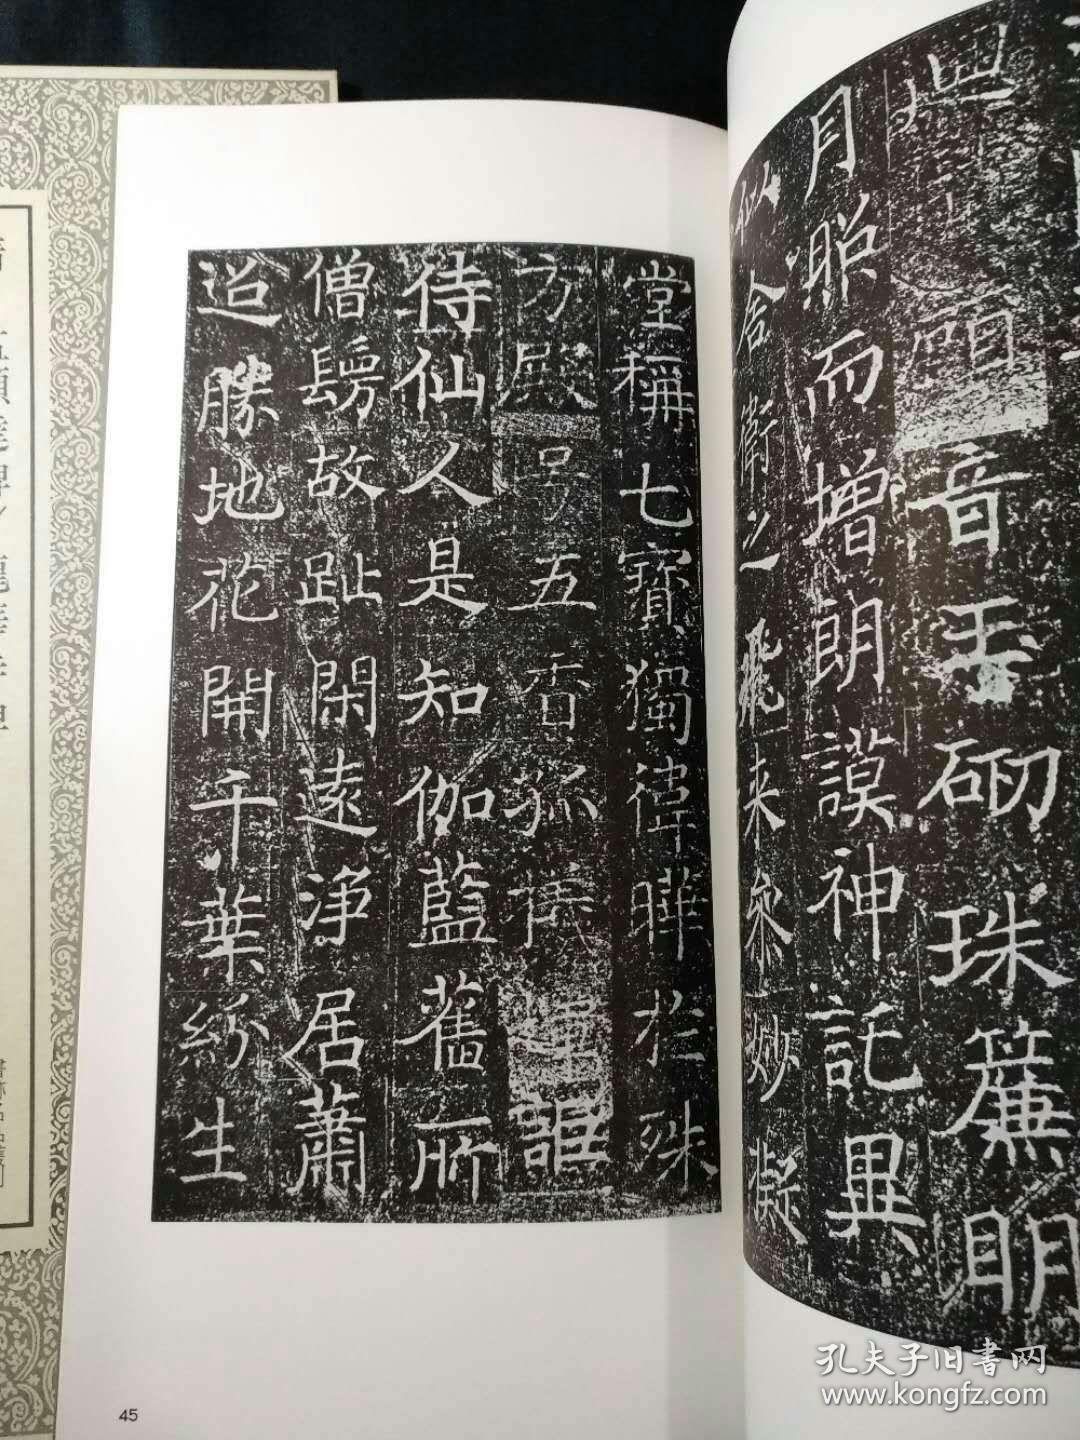 音玉砌珠簾明
月昭而增朗謨神託異
似舍衛之飛来參妙凝
堂稱七寶獨禕曄於殊
方殿号五香孤
待仙人是知伽藍舊所
僧鬘故趾閑遠淨居蕭
迢勝地花開千葉紛生
45
孔夫子旧书网
www.kongfz.com